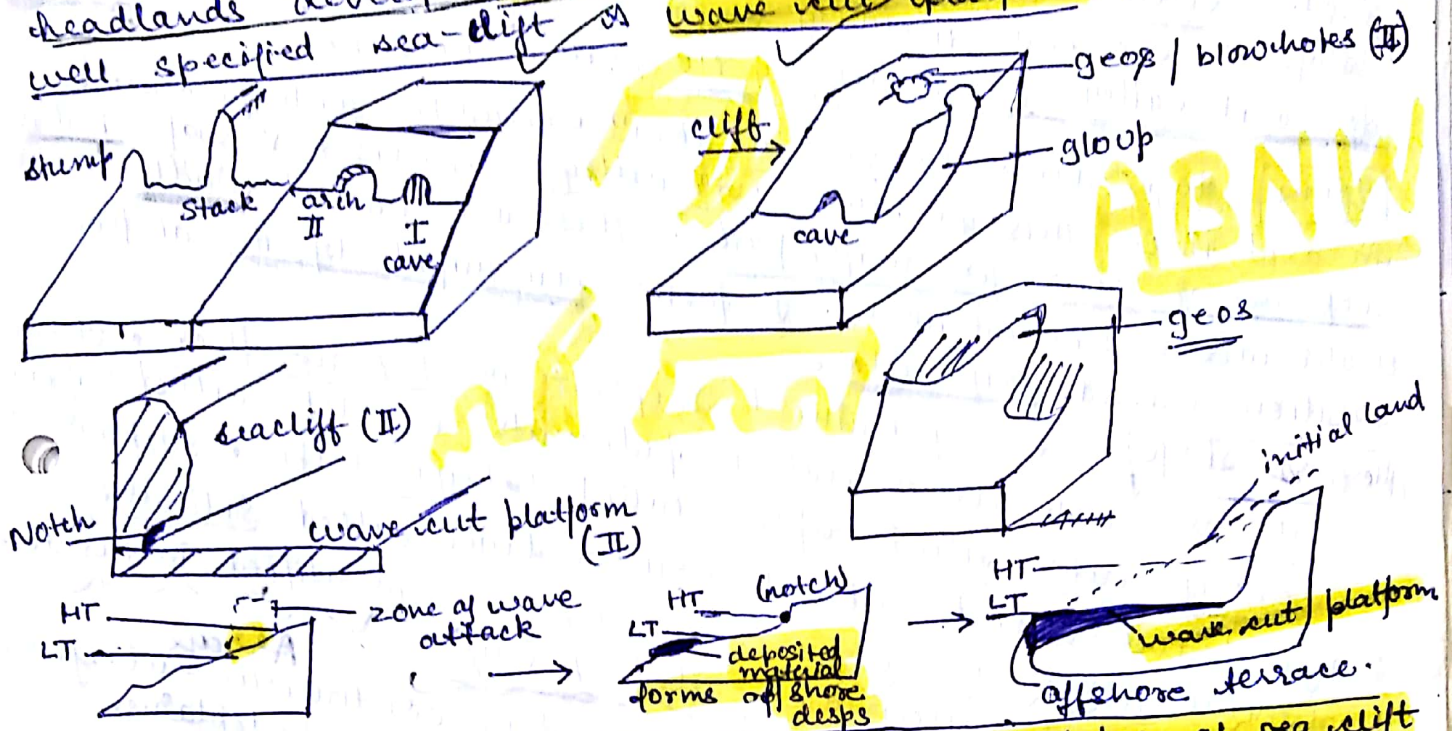 headlands
well specified sea-clift is
wave cut
stump
stack
arch
II
I
cave
cliff
cave
geos / blowholes (II)
gloup
ABNW
geos
seacliff (II)
Notch
wave cut platform
(II)
initial land
HT
LT
zone of wave
attack
HT
(notch)
LT
deposited
material
forms off shore
desps
HT
LT
wave cut platform
offshore terrace.
sea clift